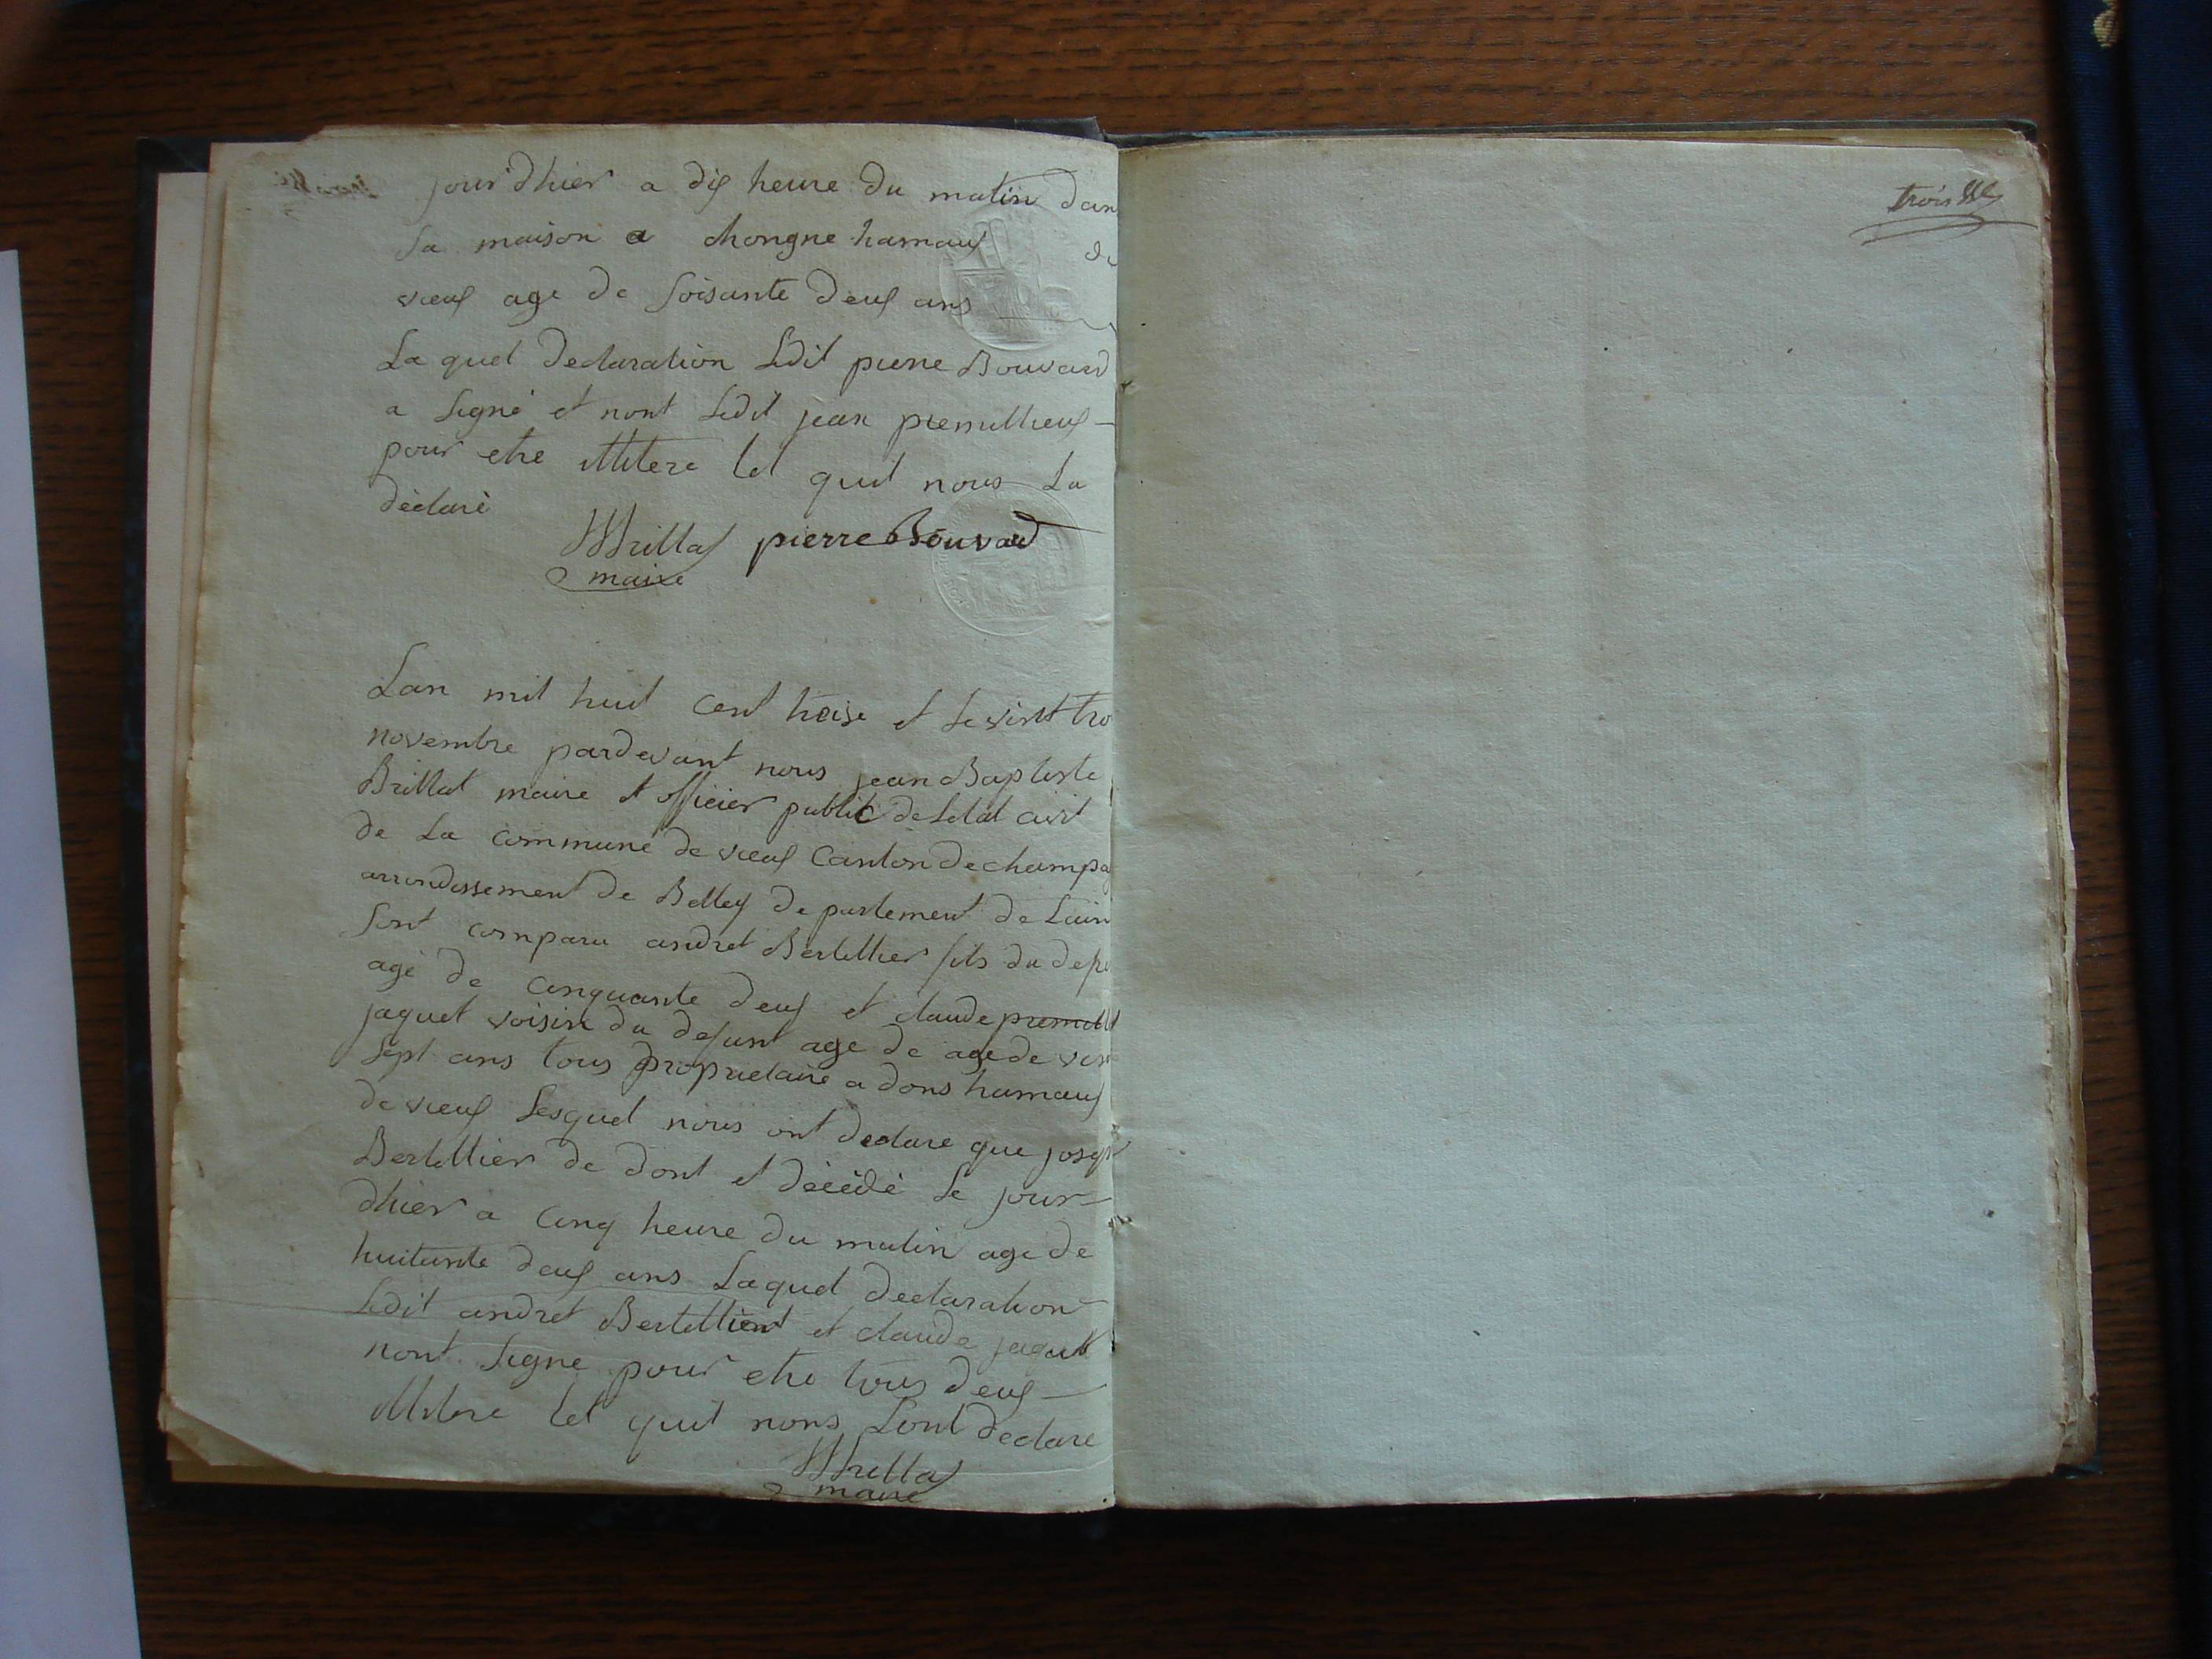 jour'dhier a dix heure du matin dan
sa maison a chongne hamaux de
vieux age de soisante deux ans
La quel declaration Ledit pierre Bouvard
a signé et nont Ledit jean premillieux
pour etre illitere tel quil nous La
déclaré
Brillat pierre Bouvard
maire
Lan mil huit cent treise et le vint tro
novembre pardevant nous jean Baptiste
Brillat maire et officier public de Letat civil
de La commune de vieux Canton de champag
arrondissement de Belley departement de Lain
sont comparu andret Bertellier fils du
agé de cinquante deux et claude premill
jaquet voisin du defunt age de age de vint
sept ans tous proprietaire a dons hamaux
de vieux Lesquel nous ont declare que joseph
Bertellier de dont et décédé Le jour
dhier a cinq heure du matin age de
huitante deux ans Laquel declaration
Ledit andret Bertellier et claude jaquet
nont signe pour etre tous deux
illitere tel quil nous Lont declare
Brillat
maire
trois